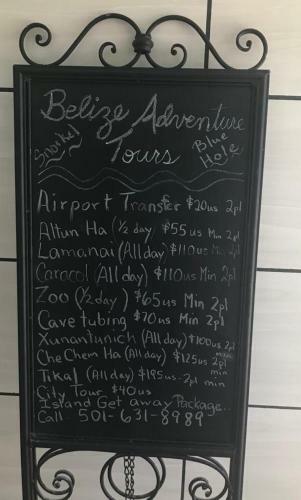 Belize Adventure
Snorkel Tours Blue Hole
Airport Transfer $20us 2pl
Altun Ha (½ day) $55us Min 2pl
Lamanai (All day) $110us Min 2pl
Caracol (All day) $110us Min 2pl
Zoo (½ day) $65us Min 2pl
Cave tubing $70us Min 2pl
Xunantunich (All day) $100us 2pl min
Che Chem Ha (All day) $125us 2pl min
Tikal (All day) $195us-2pl min
City Tour $40us
Island Get away Package..
Call 501-631-8989